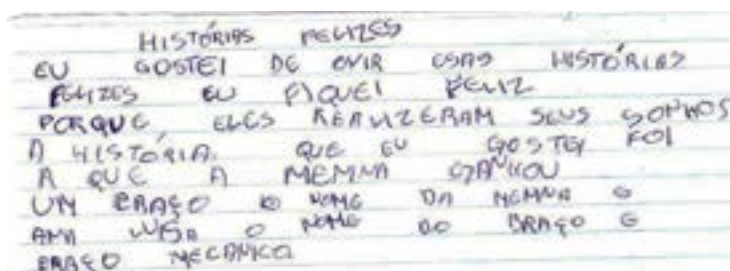 HISTÓRIAS FELIZES
EU GOSTEI DE OVIR ESAS HISTÓRIAS
FELIZES EU FIQUEI FELIZ
PORQUE ELES REALIZERAM SEUS SONHOS
A HISTÓRIA. QUE EU GOSTEI FOI
A QUE A MENINA GANHOU
UM BRAÇO O NOME DA MENINA E
ANA LUÍSA O NOME DO BRAÇO E
BRAÇO MECANICO